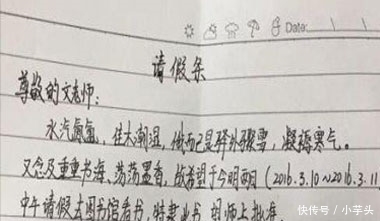 Date:
请假条
尊敬的文老师：
水汽氤氲，佳木潮湿，俄而已是驿外骤雪，凝揣寒气。
又念及重重书海、荡荡墨香，故希望于今明两日（2016.3.10～2016.3.11
中午请假去图书馆看书，特妻此书，望师上批准
快传号／小芋头